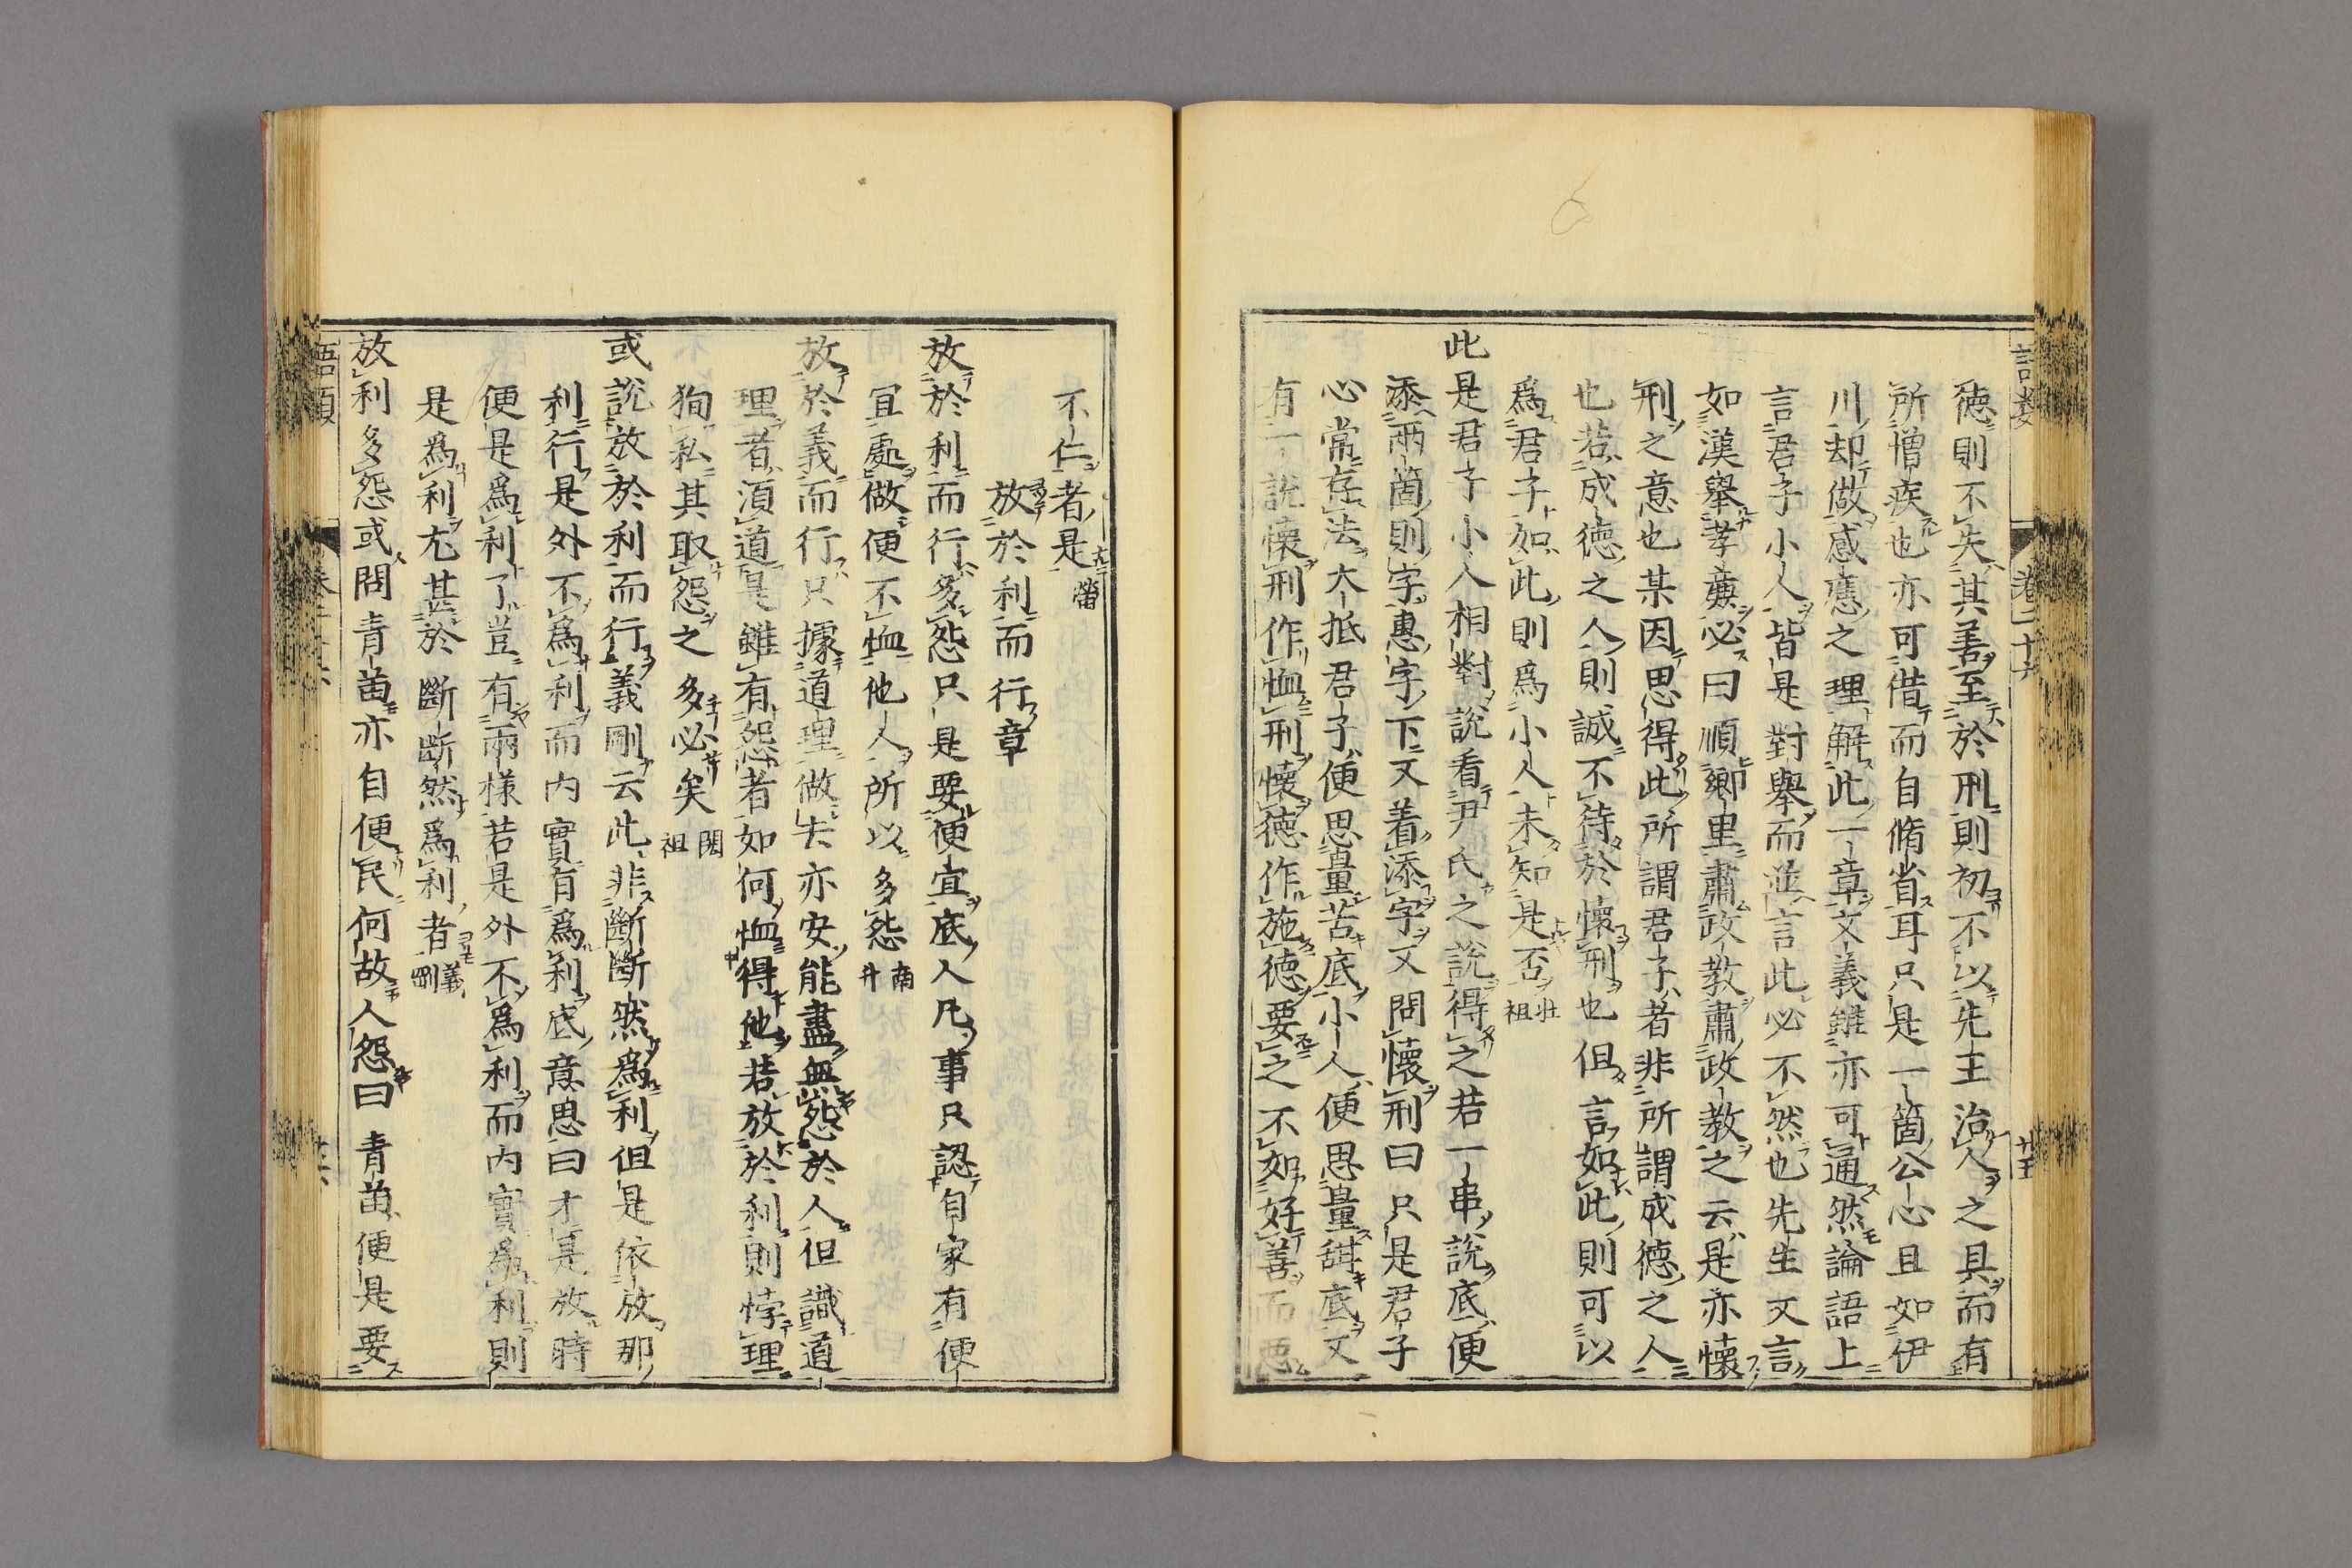 德則不失其善至於刑則初不以先王治人之具而有
所憎疾也亦可借而自脩省耳只是一箇公心且如伊
川却做感應之理解此一章文義雖亦可通然論語上
言君子小人皆是對舉而並言此必不然也先生又言
如漢舉孝廉必曰順鄉里肅政教肅政教之云是亦懷
刑之意也某因思得此所謂君子者非所謂成德之人
也若成德之人則誠不待於懷刑也但言如此則可以
爲君子如此則爲小人未知是否壯祖
此是君子小人相對說看尹氏之說得之若一串說底便
添兩箇則字惠字下又着添字又問懷刑曰只是君子
心常存法大抵君子便思量苦底小人便思量甜底又
有一說懷刑作恤刑懷德作施德要之不如好善而惡
不仁者是𤲞
放於利而行章
放於利而行多怨只是要便宜底人凡事只認自家有便
宜處做便不恤他人所以多怨南升
放於義而行只據道理做去亦安能盡無怨於人但識道
理者須道是雖有怨者如何恤得他若放於利則悖理
狥私其取怨之多必矣閎祖
或說放於利而行義剛云此非斷斷然爲利但是依放那
利行是外不爲利而內實有爲利底意思曰才是放時
便是爲利了豈有兩樣若是外不爲利而內實爲利則
是爲利尤甚於斷斷然爲利者義剛
放利多怨或問青苗亦自便民何故人怨曰青苗便是要
語類
卷二十六
廿五